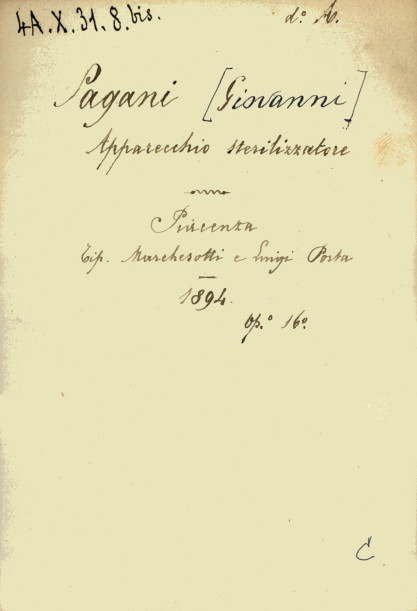 4A.X.31.8.bis.
d.º A.
Pagani [Giovanni]
Apparecchio sterilizzatore
Piacenza
Tip. Marchesotti e Luigi Porta
1894.
Op.º 16º.
C